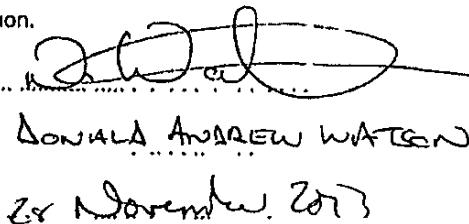 ion.
DONALD ANDREW WATSON
28 November 2013